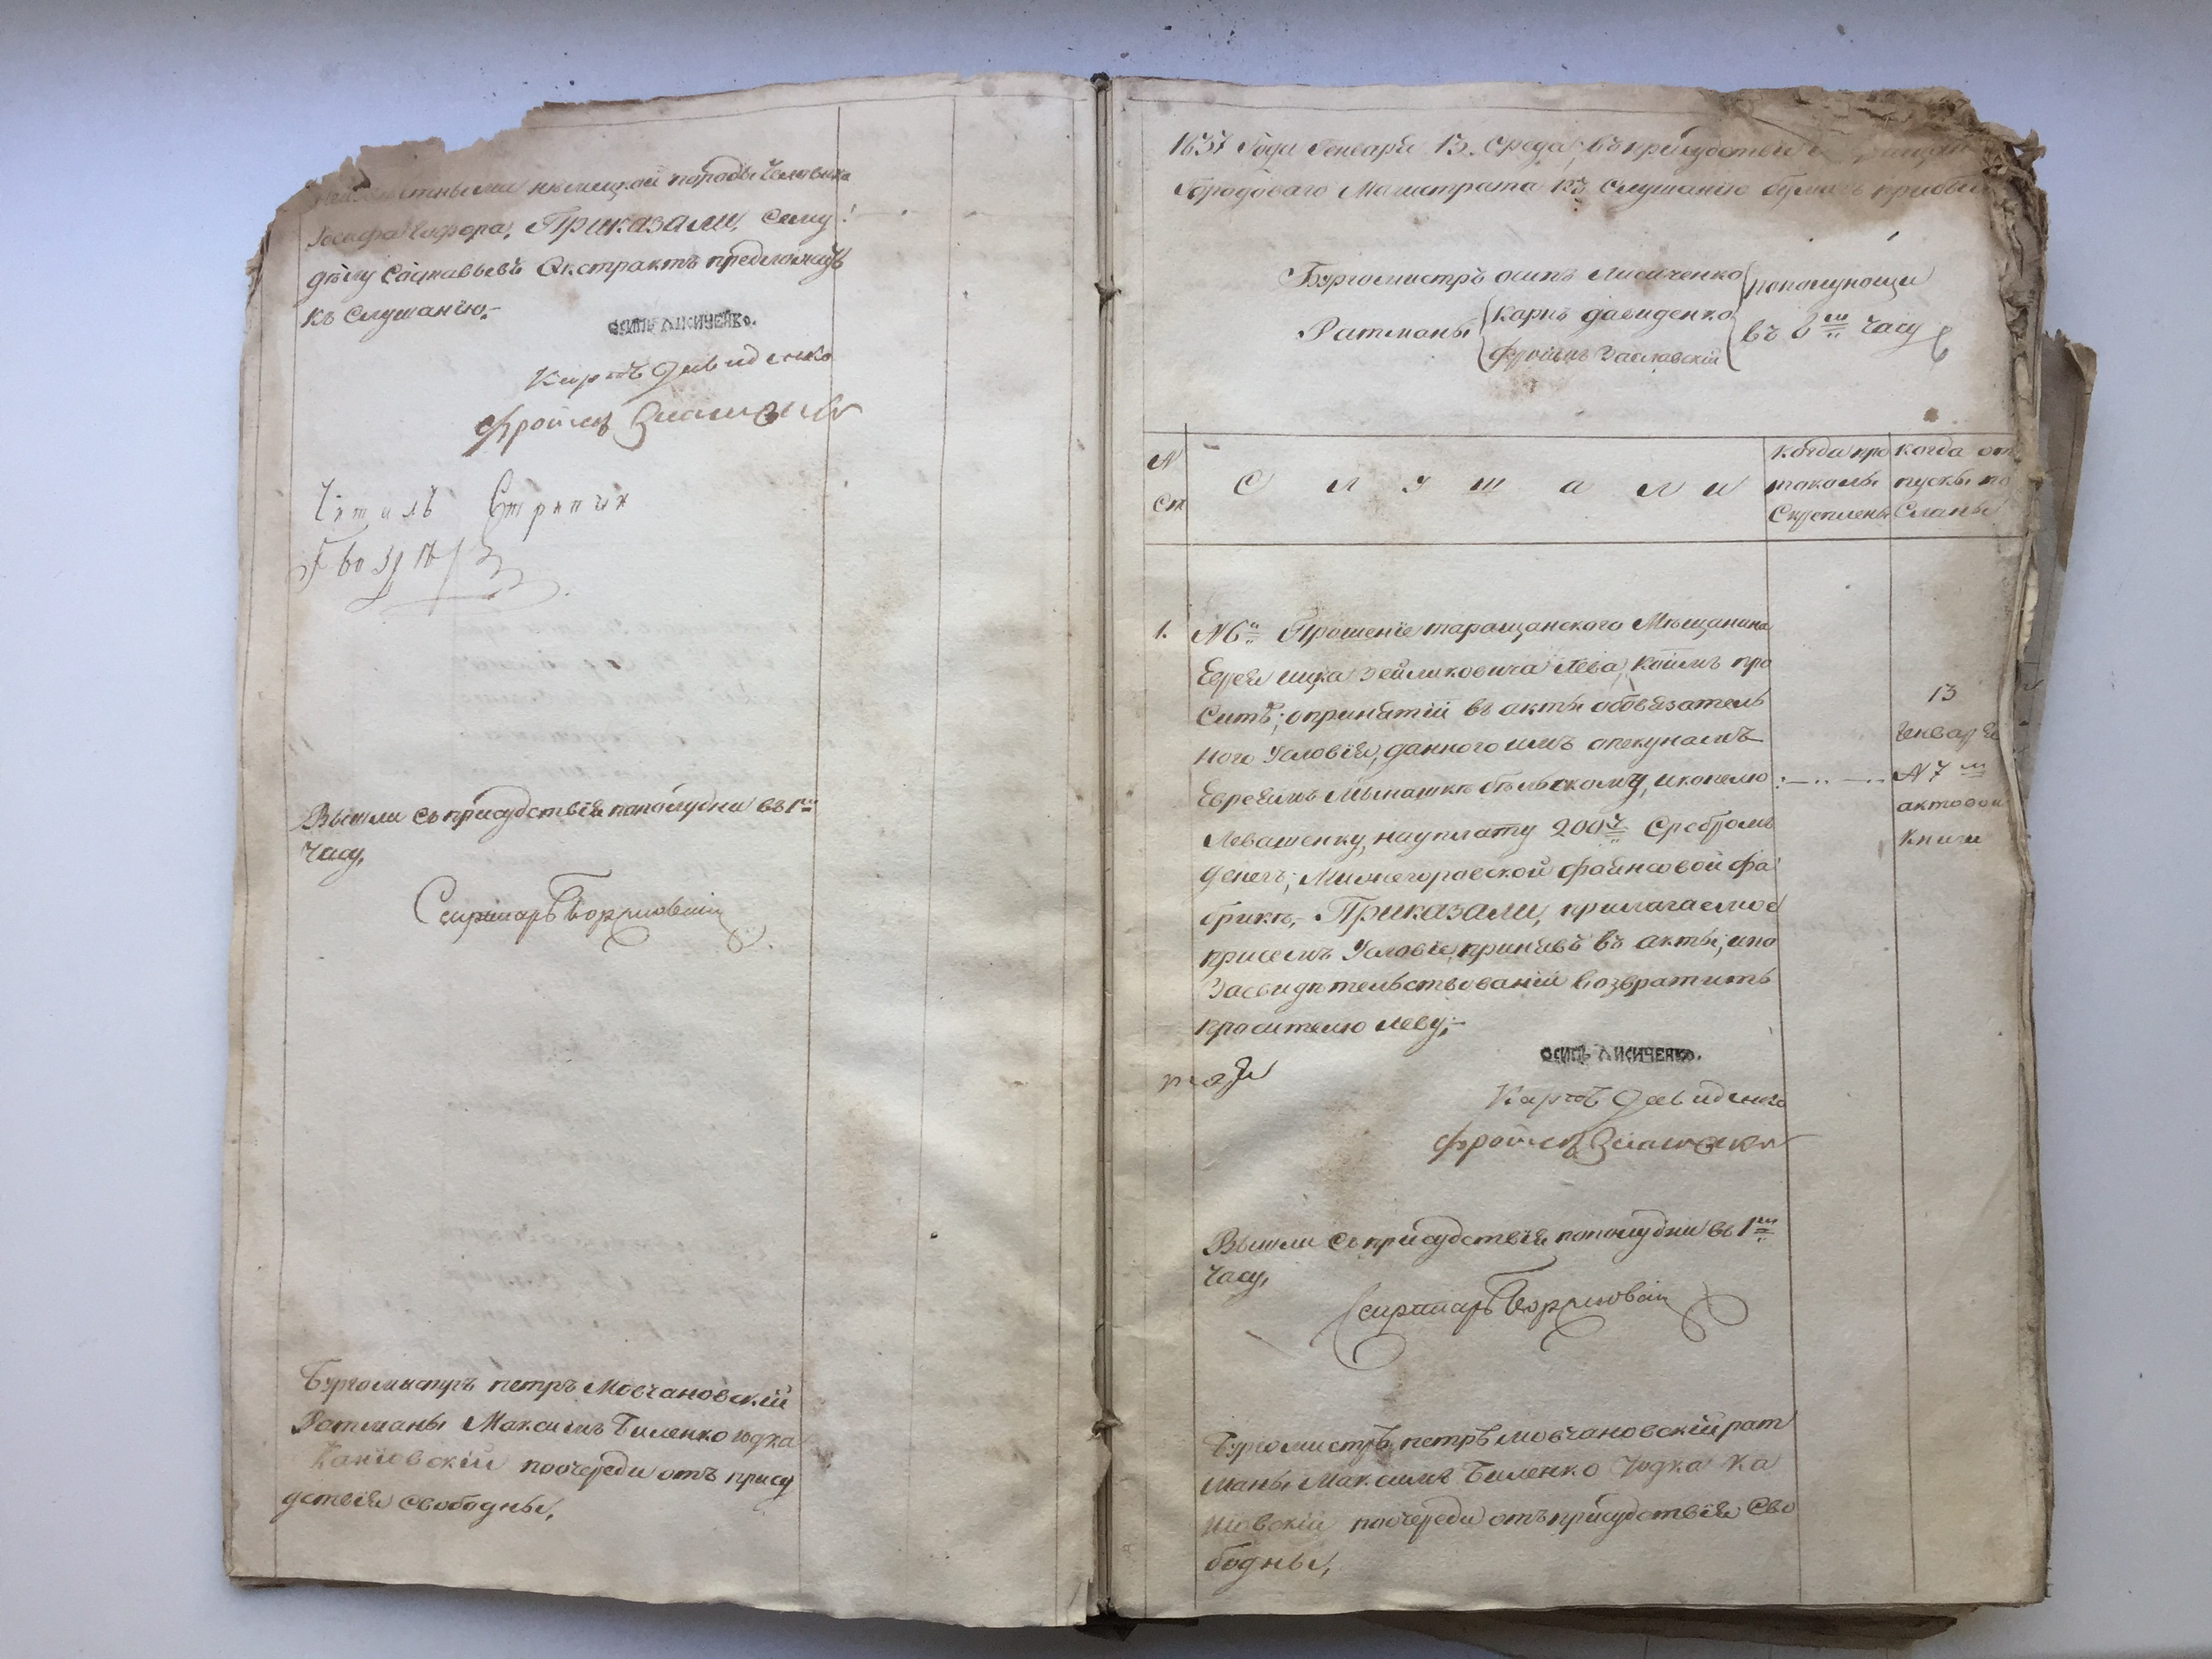 нѣмецкой породы Человѣка
Приказали, Сему
дѣлу Составьевъ Экстрактъ предложить
къ Слушанію.-
ОСИПЪ ЛИСИЧЕНКО.
Карпъ Давиденко
Фроимъ
Читалъ Стряпчи
Вышли съ присудствія пополудни въ 1м
Часу,
Секритарь
Бургомистръ петръ Мовчановскій
Ратманы Максимъ Биленко Юдка
Каніовскій поочереди отъ прису
дствія Свободны,
1837 Года Генваря 13. Среда, въ присудствіи
Городоваго Магистрата къ Слушанію бумагъ прибыли
Бургомистръ осипъ Лисиченко
Ратманы
Карпъ давиденко
Фроимъ Заславскій
пополуночи
въ 8м Часу
N
Ст
С л у ш а л и
когда про
токолы
Скрѣплены
когда от
пуски по
Сланы
1. N 6й Прошеніе таращанского Мѣщанина
Еврея ицка Зейликовича Лева, коимъ про
Ситъ; о принятіи въ акты обовязатель
ного Условія, данного имъ опекунамъ
Евреямъ Мынашкѣ бѣльскому, и копелю
Левашенку, на уплату 200 р Сребромъ
денегъ; Межегоровской фаянсовой фа
брикѣ,- Приказали, прилагаемое
присемъ Условіе, принявъ въ акты, и по
Засвидѣтельствованіи возвратить
просителю Леву;-
13
Генваря
N 7м
актовой
Книги
ОСИПЪ ЛИСИЧЕНКО.
Карпъ Давиденко
Фроимъ
Вышли съ присудствія пополудни въ 1м
Часу,
Секритарь
Бургомистръ петръ Мовчановскій рат
маны Максимъ Биленко Юдка Ка
ніовскій поочереди отъ присудствія Сво
бодны,